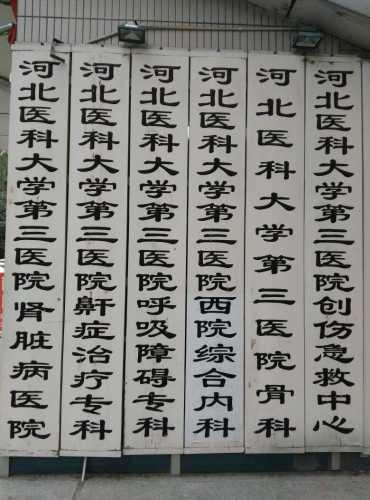 河北医科大学第三医院肾脏病医院
河北医科大学第三医院鼾症治疗专科
河北医科大学第三医院呼吸障碍专科
河北医科大学第三医院西院综合内科
河北医科大学第三医院骨科
河北医科大学第三医院创伤急救中心